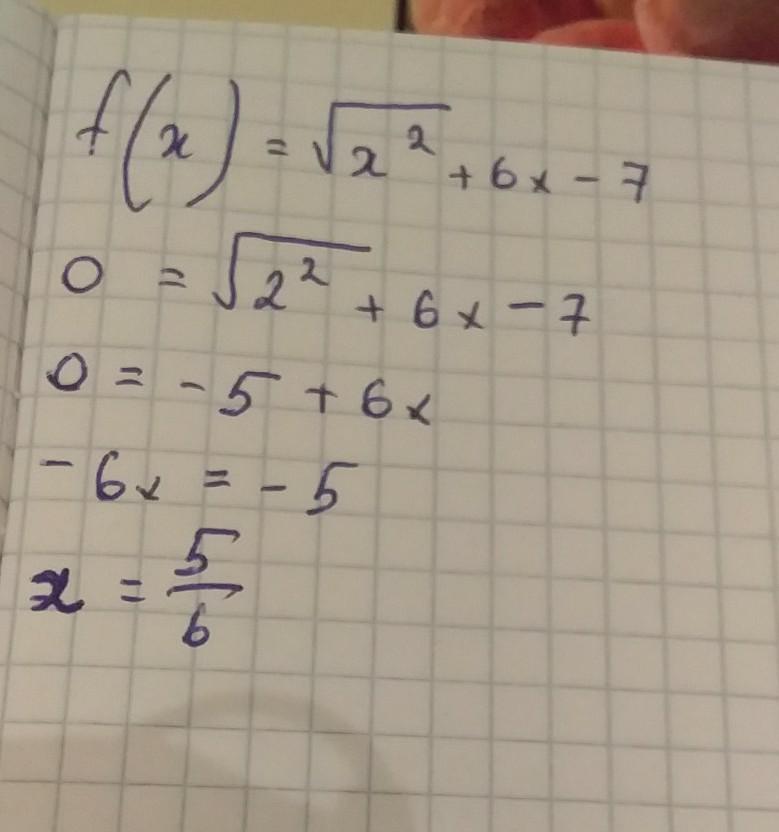 f(x) = √x² + 6x - 7
0 = √2² + 6x - 7
0 = -5 + 6x
-6x = -5
x = 5/6